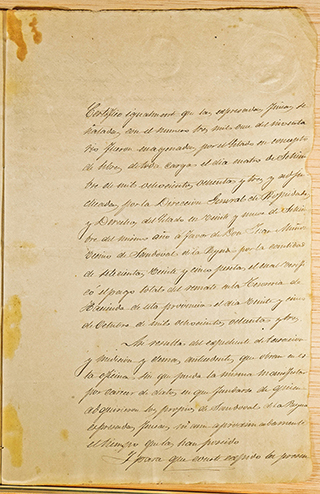 Certifico igualmente que las espresadas fincas se-
ñaladas con el numero tres mil once del inventa
rio fueron enagenadas por el Estado en concepto
de libres de toda carga el dia cuatro de Setiem
bre de mil ochocientos ochenta y tres y adju
dicadas por la Direccion General de Propiedades
y Derechos del Estado en veinte y nueve de Setiem
bre del mismo año a favor de Don Juan
de Sandoval de la Reyna por la cantidad
de setecientas veinte y cinco pesetas, el cual verifi
có el pago total del remate en la Tesoreria de
Hacienda de esta provincia el dia veinte y cinco
de Octubre de mil ochocientos ochenta y tres.
Asi resulta del espediente de tasacion
y medicion y demas antecedentes que obran en es
ta oficina sin que pueda la misma manifestar
por carecer de datos, en que fundarse de quien
adquirieron los propios de Sandoval de la Reyna
las espresadas fincas, ni aun aproximadamente
el tiempo que las han poseido
Y para que conste espido la presente